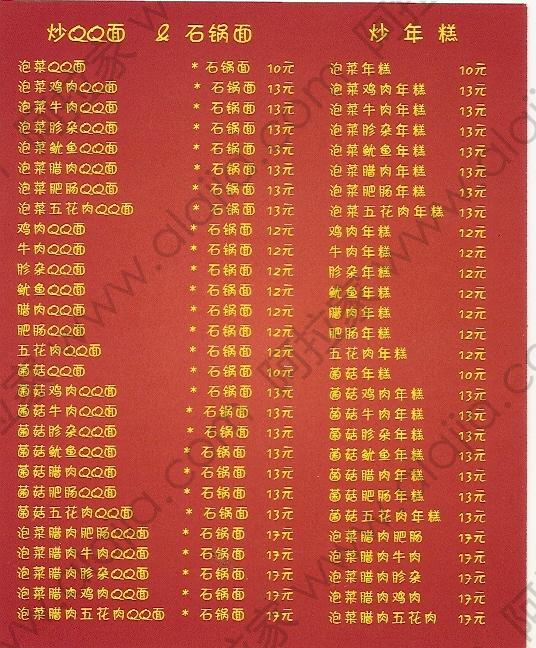 炒QQ面 & 石锅面 炒年糕
泡菜QQ面 * 石锅面 10元 泡菜年糕 10元
泡菜鸡肉QQ面 * 石锅面 13元 泡菜鸡肉年糕 13元
泡菜牛肉QQ面 * 石锅面 13元 泡菜牛肉年糕 13元
泡菜胗杂QQ面 * 石锅面 13元 泡菜胗杂年糕 13元
泡菜鱿鱼QQ面 * 石锅面 13元 泡菜鱿鱼年糕 13元
泡菜腊肉QQ面 * 石锅面 13元 泡菜腊肉年糕 13元
泡菜肥肠QQ面 * 石锅面 13元 泡菜肥肠年糕 13元
泡菜五花肉QQ面 * 石锅面 13元 泡菜五花肉年糕 13元
鸡肉QQ面 * 石锅面 12元 鸡肉年糕 12元
牛肉QQ面 * 石锅面 12元 牛肉年糕 12元
胗杂QQ面 * 石锅面 12元 胗杂年糕 12元
鱿鱼QQ面 * 石锅面 12元 鱿鱼年糕 12元
腊肉QQ面 * 石锅面 12元 腊肉年糕 12元
肥肠QQ面 * 石锅面 12元 肥肠年糕 12元
五花肉QQ面 * 石锅面 12元 五花肉年糕 12元
菌菇QQ面 * 石锅面 10元 菌菇年糕 10元
菌菇鸡肉QQ面 * 石锅面 13元 菌菇鸡肉年糕 13元
菌菇牛肉QQ面 * 石锅面 13元 菌菇牛肉年糕 13元
菌菇胗杂QQ面 * 石锅面 13元 菌菇胗杂年糕 13元
菌菇鱿鱼QQ面 * 石锅面 13元 菌菇鱿鱼年糕 13元
菌菇腊肉QQ面 * 石锅面 13元 菌菇腊肉年糕 13元
菌菇肥肠QQ面 * 石锅面 13元 菌菇肥肠年糕 13元
菌菇五花肉QQ面 * 石锅面 13元 菌菇五花肉年糕 13元
泡菜腊肉肥肠QQ面 * 石锅面 17元 泡菜腊肉肥肠 17元
泡菜腊肉牛肉QQ面 * 石锅面 17元 泡菜腊肉牛肉 17元
泡菜腊肉胗杂QQ面 * 石锅面 17元 泡菜腊肉胗杂 17元
泡菜腊肉鸡肉QQ面 * 石锅面 17元 泡菜腊肉鸡肉 17元
泡菜腊肉五花肉QQ面 * 石锅面 17元 泡菜腊肉五花肉 17元
阿拉家 www.alajia.com